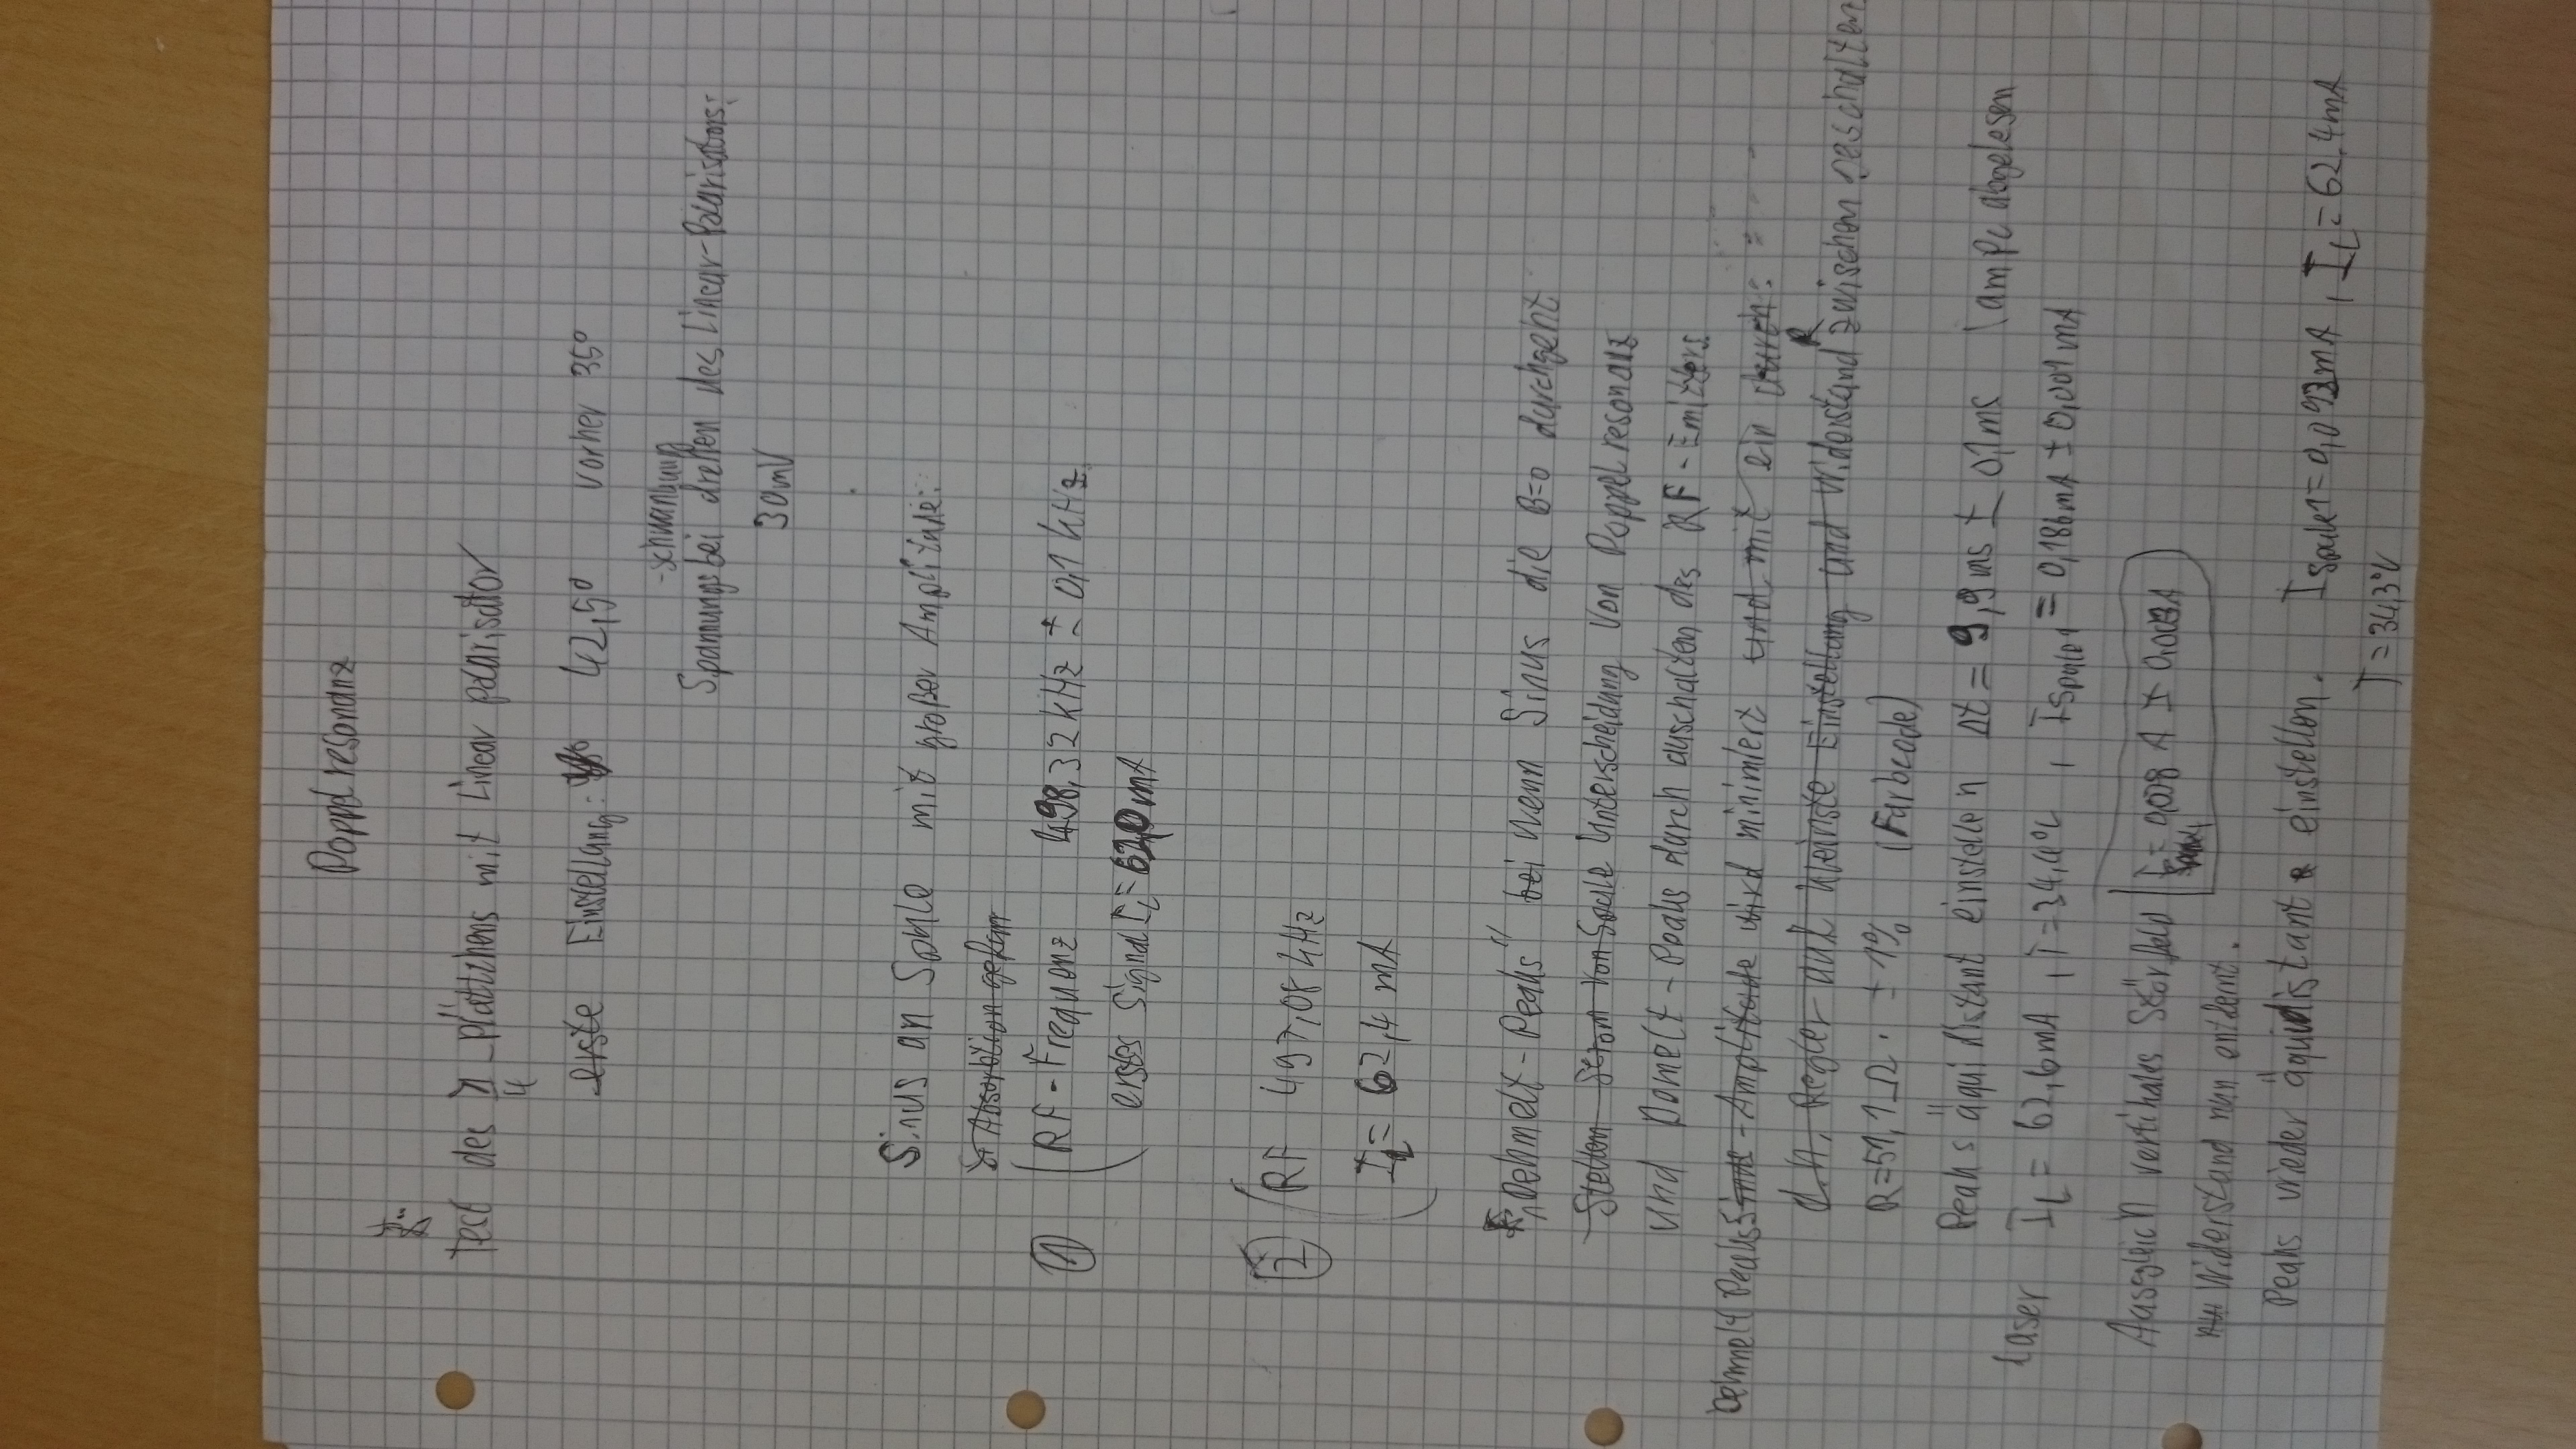 Doppelresonanz
Test des λ/4 -Plättchens mit Linear polarisator
erste Einstellung: 42,5° vorher 35°
-schwankung
Spannungs bei drehen des Linear-Polarisators:
30mV
Sinus an Spule mit großer Amplitude:
Absorbtion
① RF-Frequenz 498,32 kHz ± 0,1 kHz
erstes Signal I_L = 62,0 mA
② RF 497,08 kHz
I_L = 62,4 mA
"Dehmelt-Peaks" bei wenn Sinus die B=0 durchgeht
Stellen Strom von Spule Unterscheidung von Doppelresonanz
und Damelt-Peaks durch auschalten des RF-Emitters.
Dehmelt Peaks Sinus-Amplitude wird minimiert und mit ein durch:
d.h. Regler auf kleinste Einstellung und Widerstand R zwischen geschalten
R=51,1Ω ± 1% (Farbcode)
Peaks äquidistant einstellen Δt = 9,9ms ± 0,1ms (am PC abgelesen
Laser I_L = 62,6mA, T=34,4°C, I_Spule1 = 0,186mA ± 0,001mA
Ausgleich vertikales Störfeld I = 0,008 A ± 0,003A
Widerstand nun entfernt.
Peaks wieder äquidistant einstellen. I_Spule1 = 0,093mA, I_L = 62,4mA
T = 34,3°C